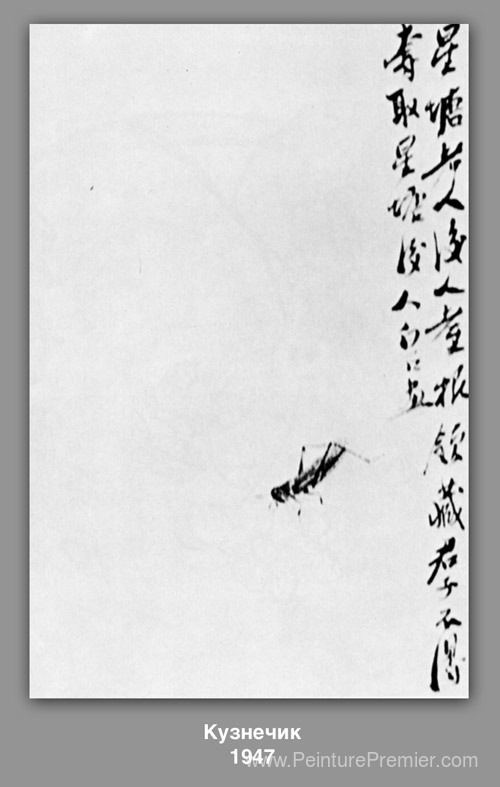 星塘老人後人領藏君子不得
取星塘後人白石
Кузнечик
1947
www.PeinturePremier.com